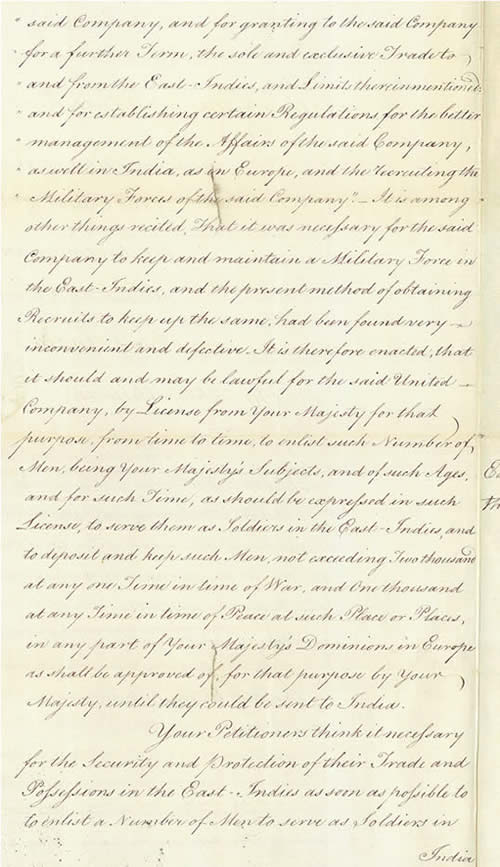 " said Company, and for granting to the said Company
" for a further Term, the sole and exclusive Trade to
" and from the East-Indies, and Limits therein mentioned;
" and for establishing certain Regulations for the better
" management of the Affairs of the said Company,
" as well in India, as in Europe, and the recruiting the
" Military Forces of the said Company". — It is among
other things recited, That it was necessary for the said
Company to keep and maintain a Military Force in
the East-Indies, and the present method of obtaining
Recruits to keep up the same, had been found very —
inconvenient and defective. It is therefore enacted, that
it should and may be lawful for the said United —
Company, by License from Your Majesty for that
purpose, from time to time, to enlist such Number of
Men, being Your Majesty's Subjects, and of such Ages,
and for such Time, as should be expressed in such
License, to serve them as Soldiers in the East-Indies, and
to deposit and keep such Men, not exceeding Two thousand
at any one Time in time of War, and One thousand
at any Time in time of Peace at such Place or Places,
in any part of Your Majesty's Dominions in Europe
as shall be approved of, for that purpose by Your
Majesty, until they could be sent to India.
Your Petitioners think it necessary
for the Security and Protection of their Trade and
Possessions in the East-Indies as soon as possible to
to enlist a Number of Men to serve as Soldiers in
India